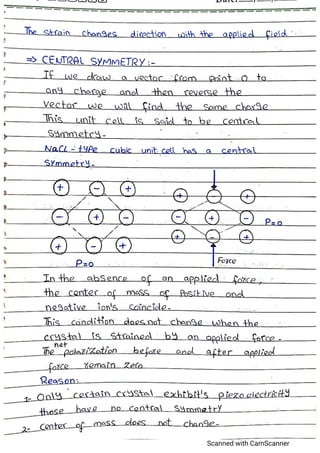 The strain changes direction with the applied field.
⇒ CENTRAL SYMMETRY :-
If we draw a vector from point O to
any charge and then reverse the
vector we will find the same charge
This unit cell is said to be central
Symmetry.
NaCl - type cubic unit cell has a central
symmetry.
+ - +
- + -
+ - +
P=0
+ - +
- + -
+ - +
P=0
Force
In the absence of an applied force,
the center of mass of positive and
negative ion's coincide.
This condition does not change when the
crystal is strained by an applied force.
The net polarization before and after applied
force remain zero
Reason:
1- Only certain crystal exhibit's piezoelectricity
those have no central symmetry
2- Center of mass does not change.
Scanned with CamScanner